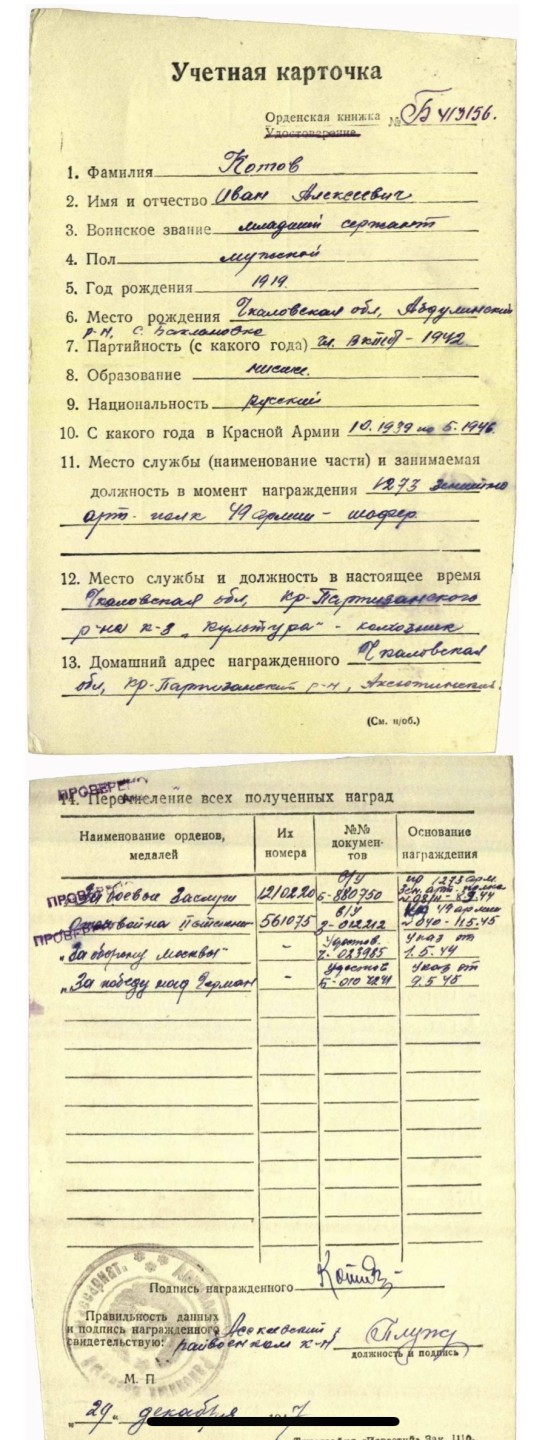 Учетная карточка
Орденская книжка № Б 413156.
Удостоверение
1. Фамилия Котов
2. Имя и отчество Иван Алексеевич
3. Воинское звание младший сержант
4. Пол мужской
5. Год рождения 1919.
6. Место рождения Чкаловская обл, Абдулинский
р-н, с. Баклановка
7. Партийность (с какого года) чл. ВКПб - 1942
8. Образование низшее.
9. Национальность русский
10. С какого года в Красной Армии 10.1939 по 5.1946
11. Место службы (наименование части) и занимаемая
должность в момент награждения 1273 зенитно
арт. полк 49 армии - шофер
12. Место службы и должность в настоящее время
Чкаловская обл, Кр-Партизанского
р-на к-з "Культура" - колхозник
13. Домашний адрес награжденного Чкаловская
обл, Кр-Партизанский р-н, Аксютинский
(См. н/об.)
ПРОВЕРЕНО
14. Перечисление всех полученных наград
Наименование орденов, медалей
Их номера
№№ документов
Основание награждения
ПРОВЕРЕНО
За боевые Заслуги 1210220 Б-880750
ПРОВЕРЕНО
561075 49 армии
"За оборону Москвы" - Удостов. 023985 Указ от 1.5.44
"За победу над Герман - Удостов Указ от 9.5.45
Подпись награжденного Котов
Правильность данных
и подпись награжденного Асекеевский
свидетельствую: райвоенком к-н
должность и подпись
М. П
"29" декабря